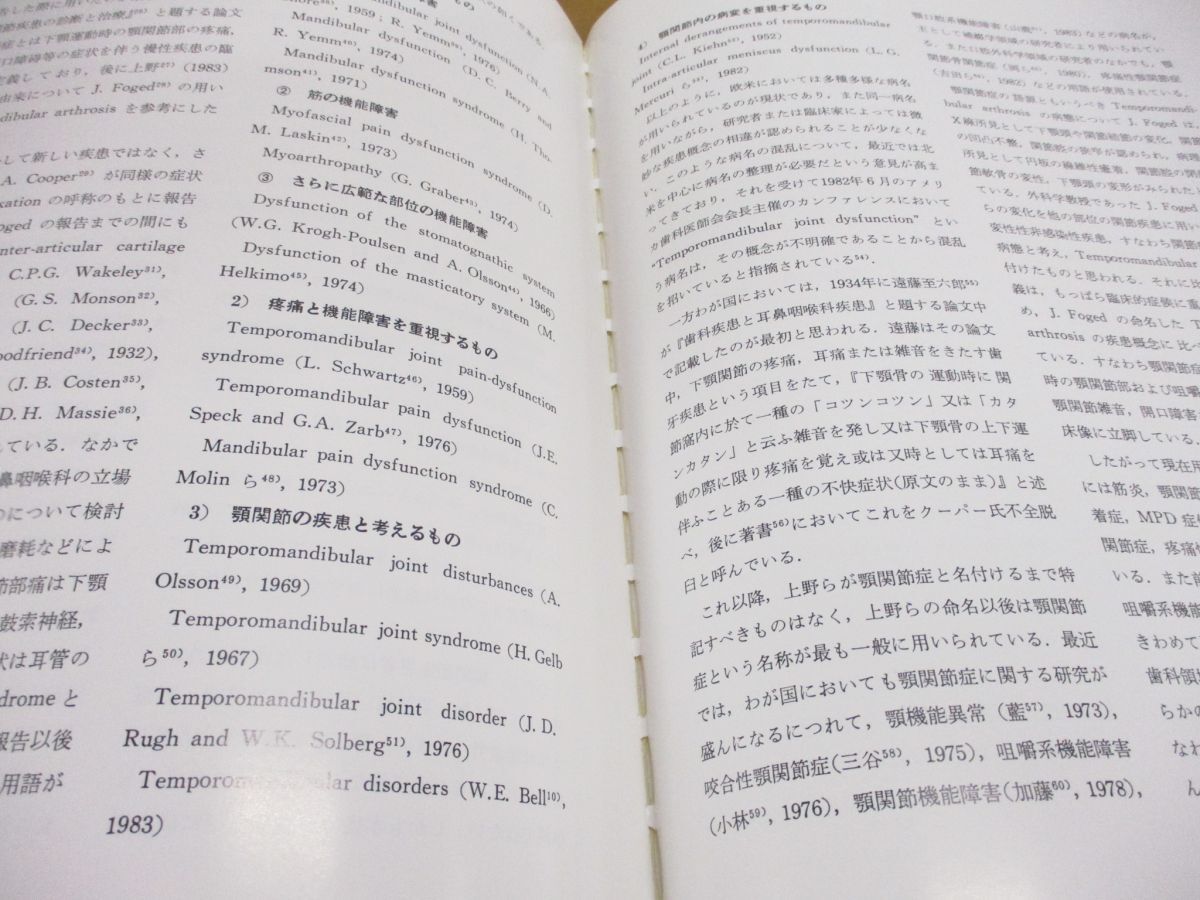 疾患の診断と治療』²⁶⁾と題する論文
症とは下顎運動時の顎関節部の疼痛,
口障碍等の症状を伴う慢性疾患の臨
義しており, 後に上野²⁷⁾ (1983)
由来について J. Foged²⁸⁾ の用い
dibular arthrosis を参考にした
して新しい疾患ではなく, さ
A. Cooper²⁹⁾ が同様の症状
xation の呼称のもとに報告
oged の報告までの間にも
nter-articular cartilage
C.P.G. Wakeley³¹⁾,
(G.S. Monson³²⁾,
(J.C. Decker³³⁾,
oodfriend³⁴⁾, 1932),
(J.B. Costen³⁵⁾,
D.H. Massie³⁶⁾,
れている. なかで
鼻咽喉科の立場
のについて検討
磨耗などによ
節部痛は下顎
鼓索神経,
状は耳管の
ndrome と
報告以後
用語が
Mandibular joint dysfunction (N.A.
hore³⁸⁾, 1959 ; R. Yemm³⁹⁾, 1976)
Mandibular dysfunction (D.C. Berry and
R. Yemm⁴⁰⁾, 1974)
Mandibular dysfunction syndrome (H. Tho-
mson⁴¹⁾, 1971)
② 筋の機能障害
Myofascial pain dysfunction syndrome (D.
M. Laskin⁴²⁾, 1973)
Myoarthropathy (G. Graber⁴³⁾, 1974)
③ さらに広範な部位の機能障害
Dysfunction of the stomatognathic system
(W.G. Krogh-Poulsen and A. Olsson⁴⁴⁾, 1966)
Dysfunction of the masticatory system (M.
Helkimo⁴⁵⁾, 1974)
2) 疼痛と機能障害を重視するもの
Temporomandibular joint pain-dysfunction
syndrome (L. Schwartz⁴⁶⁾, 1959)
Temporomandibular pain dysfunction (J.E.
Speck and G.A. Zarb⁴⁷⁾, 1976)
Mandibular pain dysfunction syndrome (C.
Molin ら⁴⁸⁾, 1973)
3) 顎関節の疾患と考えるもの
Temporomandibular joint disturbances (A.
Olsson⁴⁹⁾, 1969)
Temporomandibular joint syndrome (H. Gelb
ら⁵⁰⁾, 1967)
Temporomandibular joint disorder (J.D.
Rugh and W.K. Solberg⁵¹⁾, 1976)
Temporomandibular disorders (W.E. Bell¹⁰⁾,
1983)
4) 顎関節内の病変を重視するもの
Internal derangements of temporomandibular
joint (C.L. Kiehn⁵²⁾, 1952)
Intra-articular meniscus dysfunction (L.G.
Mercuri ら⁵³⁾, 1982)
以上のように, 欧米においては多種多様な病名
が用いられているのが現状であり, また同一病名
を用いながら, 研究者または臨床家によっては微
妙な疾患概念の相違が認められることが少なくな
い. このような病名の混乱について, 最近では北
米を中心に病名の整理が必要だという意見が高ま
ってきており, それを受けて1982年6月のアメリ
カ歯科医師会会長主催のカンファレンスにおいて
“Temporomandibular joint dysfunction” とい
う病名は, その概念が不明確であることから混乱
を招いていると指摘されている⁵⁴⁾.
一方わが国においては, 1934年に遠藤至六郎⁵⁵⁾
が『歯科疾患と耳鼻咽喉科疾患』と題する論文中
で記載したのが最初と思われる. 遠藤はその論文
中, 下顎関節の疼痛, 耳痛または雑音をきたす歯
牙疾患という項目をたて,『下顎骨の運動時に関
節窩内に於て一種の「コツンコツン」又は「カタ
ンカタン」と云ふ雑音を発し又は下顎骨の上下運
動の際に限り疼痛を覚え或は又時としては耳痛を
伴ふことある一種の不快症状(原文のまま)』と述
べ, 後に著書⁵⁶⁾においてこれをクーパー氏不全脱
臼と呼んでいる.
これ以降, 上野らが顎関節症と名付けるまで特
記すべきものはなく, 上野らの命名以後は顎関節
症という名称が最も一般に用いられている. 最近
では, わが国においても顎関節症に関する研究が
盛んになるにつれて, 顎機能異常 (藍⁵⁷⁾, 1973),
咬合性顎関節症(三谷⁵⁸⁾, 1975), 咀嚼系機能障害
(小林⁵⁹⁾, 1976), 顎関節機能障害(加藤⁶⁰⁾, 1978),
顎口腔系機能障害(山鹿, 1983)などの病名が,
主として補綴学領域の研究者により用いられてい
る. また口腔外科学領域の研究者のなかでも, 顎
1982) などの用語が使用されている.
顎関節症の語源ともいうべき Temporomandi-
bular arthrosis の病態について J. Foged は,
X線所見として下顎頭や関節結節の変化, 関節
の凹凸不整, 関節腔の狭窄が認められ, 病理
所見として円板の線維性癒着, 関節腔の
節軟骨の変性, 下顎頭の変形がみられた
ている. 外科学教授であった J. Foged
らの変化を他の部位の関節疾患に用い
変性性非感染性疾患, すなわち関節
病態と考え, Temporomandibular
付けたものと思われる. それに比
義は, もっぱら臨床的症状に重
め, J. Foged の命名した下
arthrosis の疾患概念に比べ
ている. すなわち顎関節症
時の顎関節部および咀嚼
顎関節雑音, 開口障害
床像に立脚している.
したがって現在用
には筋炎, 顎関節
着症, MPD 症候
関節症, 疼痛性
いる. また前
咀嚼系機能
きわめて
歯科領域
らかの
なわ
ん